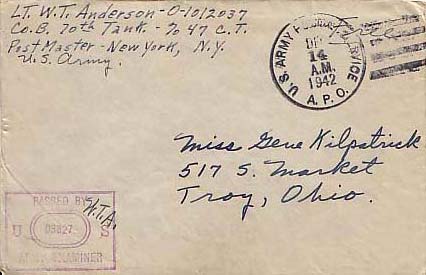 LT. W.T. Anderson - O-1012037
Co. B. 70th Tank - % 47 C.T.
Post Master - New York, N.Y.
U.S. Army.
Free
U.S. ARMY POSTAL SERVICE
14
A.M.
1942
A.P.O.
Miss Gene Kilpatrick
517 S. Market
Troy, Ohio.
PASSED BY
W.T.A.
U S
ARMY EXAMINER